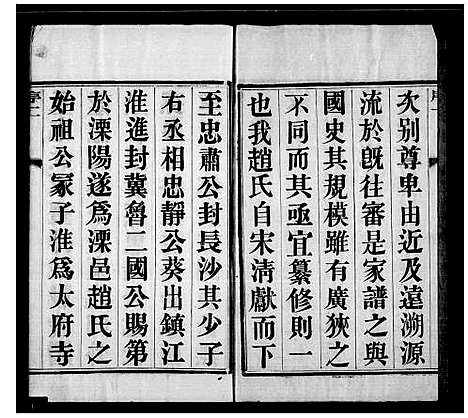 次别尊卑由近及遠溯源
流於既往審是家譜之與
國史其規模雖有廣狹之
不同而其亟宜纂修則一
也我趙氏自宋淸獻而下
至忠肅公封長沙其少子
右丞相忠靖公葵出鎮江
淮進封冀魯二國公賜第
於溧陽遂爲溧邑趙氏之
始祖公冢子淮爲太府寺